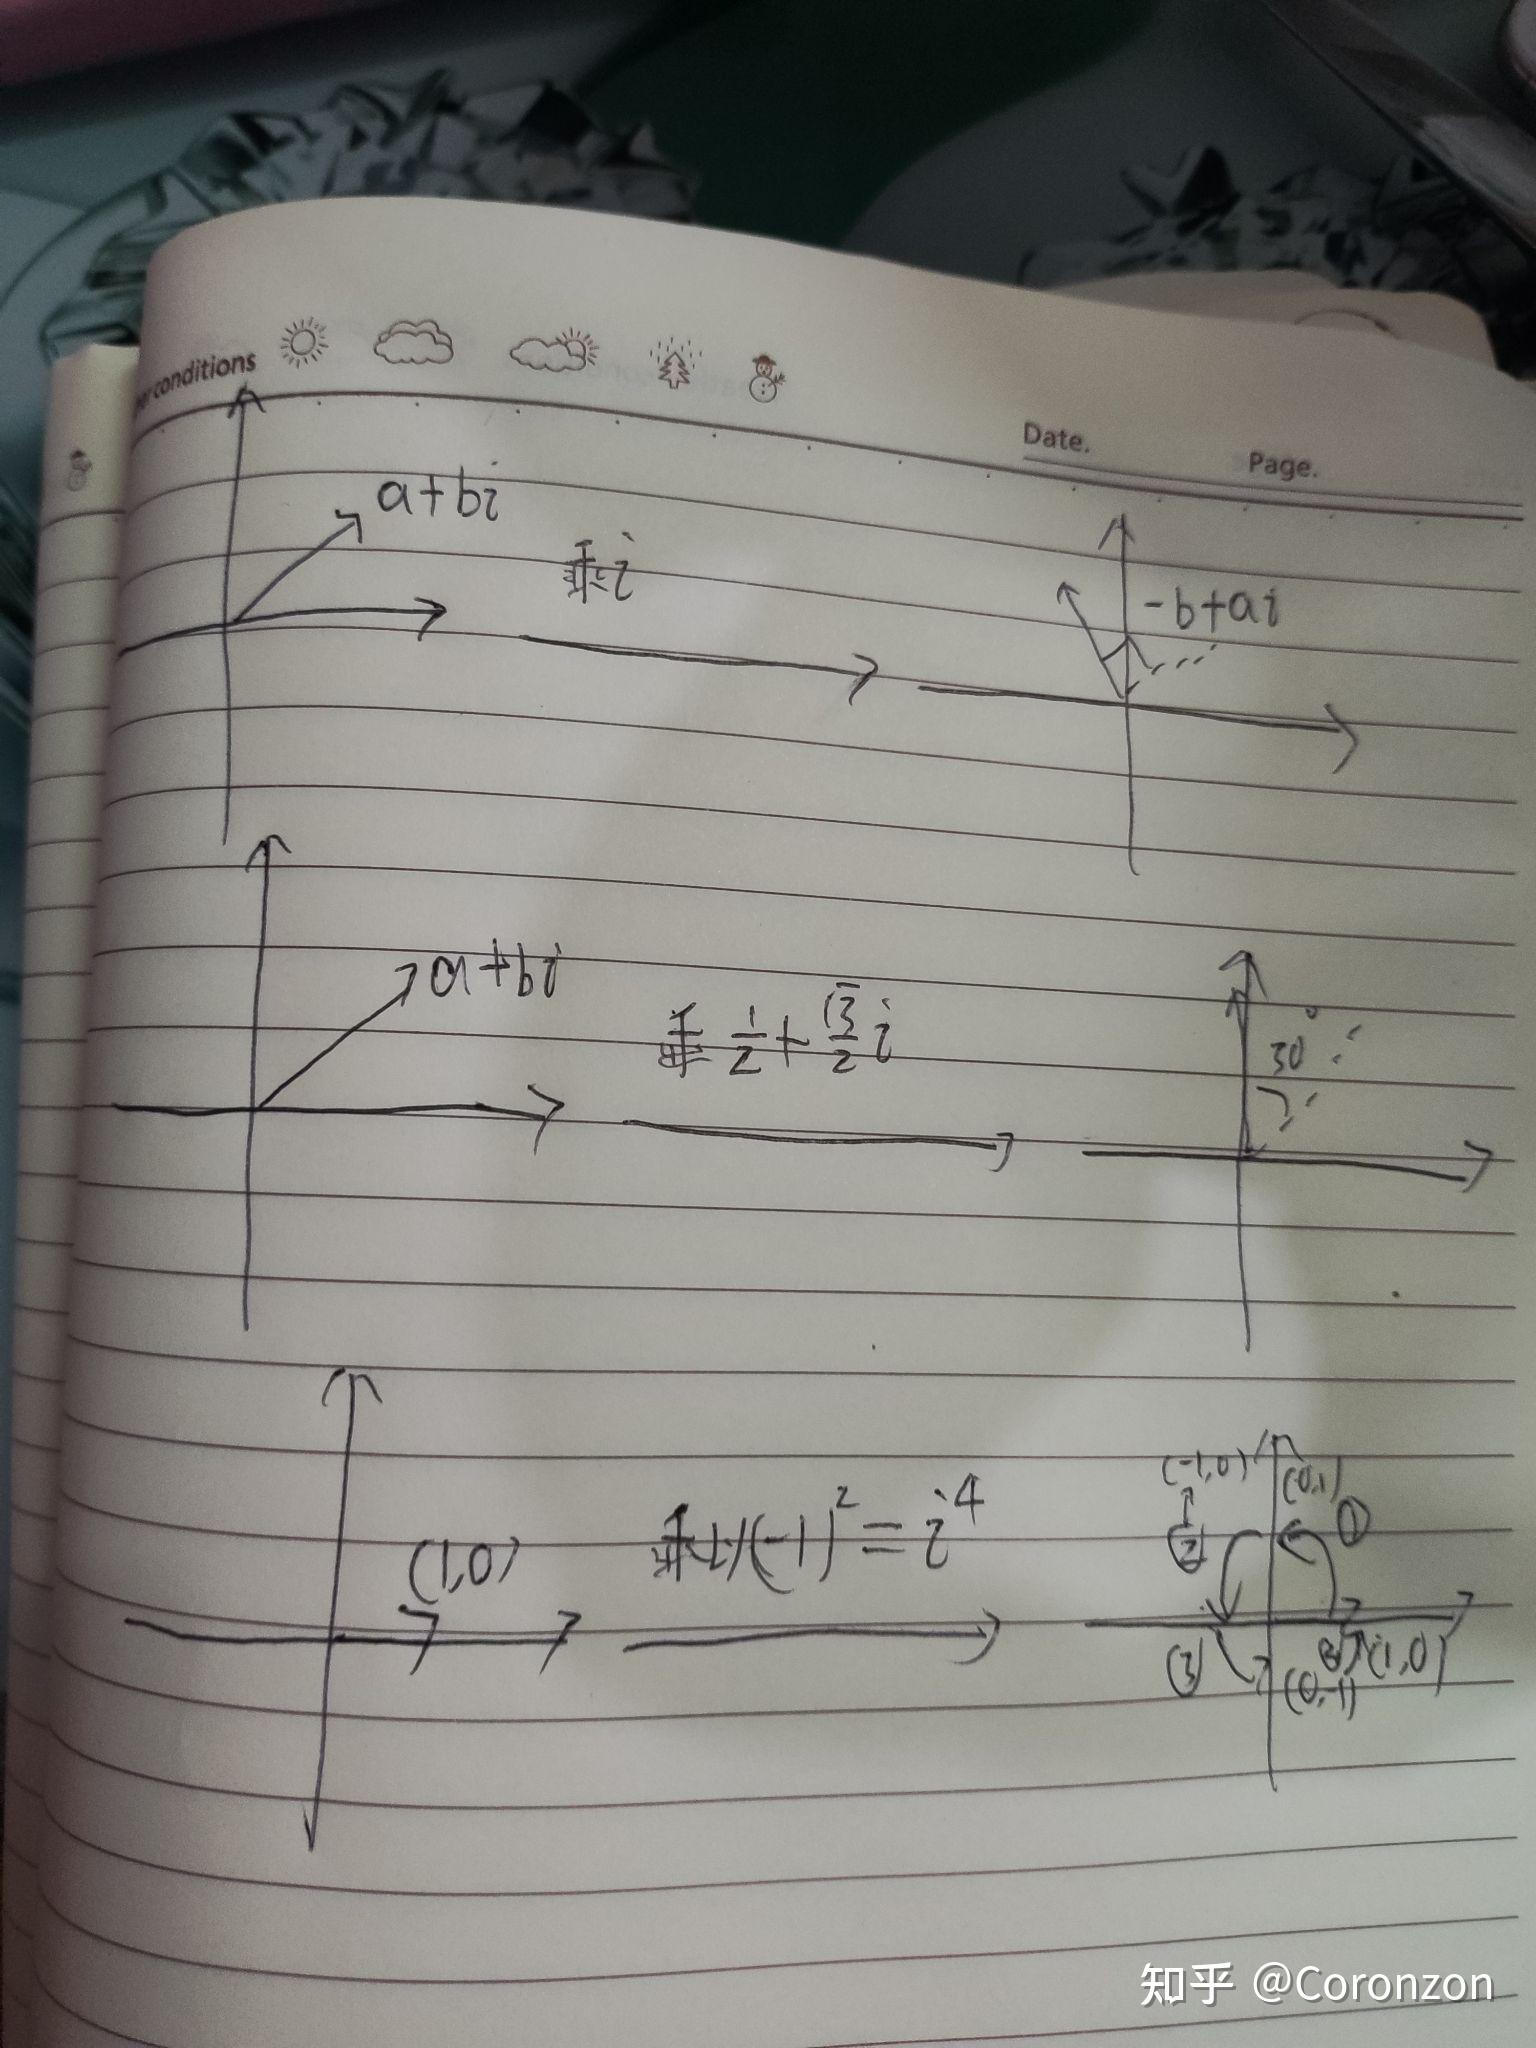 er conditions
Date.
Page.
a+bi
乘i
-b+ai
a+bi
乘 1/2 + √3/2 i
30°
(1,0)
乘以(-1)²=i⁴
(-1,0)
(0,1)
①
②
③
(1,0)
(0,-1)
知乎 @Coronzon